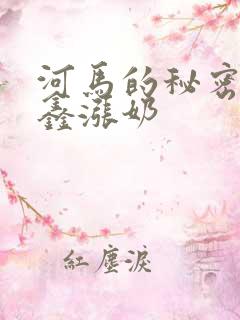 河馬的秘密
鑫漲奶
紅塵淚